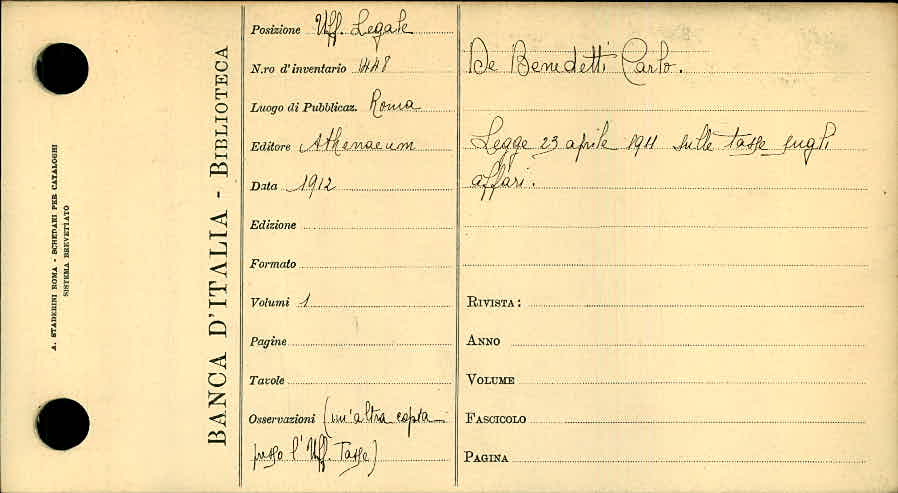 A. STADERINI ROMA - SCHEDARI PER CATALOGHI
SISTEMA BREVETTATO
BANCA D'ITALIA - BIBLIOTECA
Posizione Uff. Legale
N.ro d'inventario 1448
Luogo di Pubblicaz. Roma
Editore Athenaeum
Data 1912
Edizione
Formato
Volumi 1
Pagine
Tavole
Osservazioni (un'altra copia
presso l'Uff. Tasse)
De Benedetti Carlo.
Legge 23 aprile 1911 sulle tasse sugli
affari.
RIVISTA:
ANNO
VOLUME
FASCICOLO
PAGINA